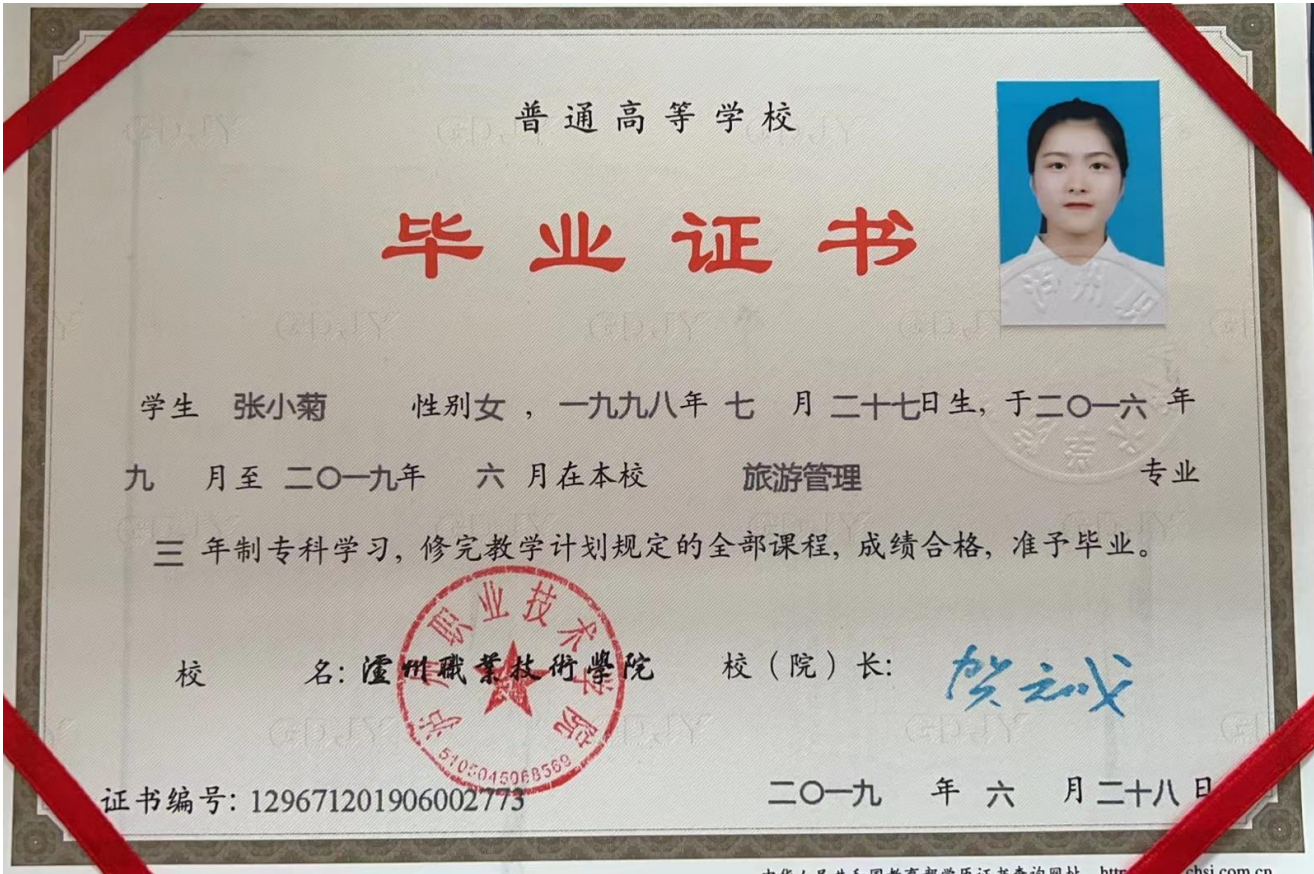 普通高等学校
毕业证书
学生 张小菊 性别女，一九九八年 七 月 二十七日生，于二〇一六 年
九 月至 二〇一九年 六 月在本校 旅游管理 专业
三 年制专科学习，修完教学计划规定的全部课程，成绩合格，准予毕业。
校 名：瀘州職業技術學院 校（院）长：贺元成
泸州职业技术学院
5105045068569
证书编号：129671201906002773 二〇一九 年 六 月 二十八 日
中华人民共和国教育部学历证书查询网址 chsi.com.cn
GDJY
泸州职